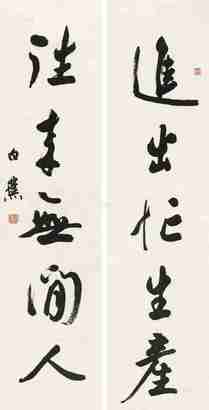 進出忙生產
往来無閒人
白蕉